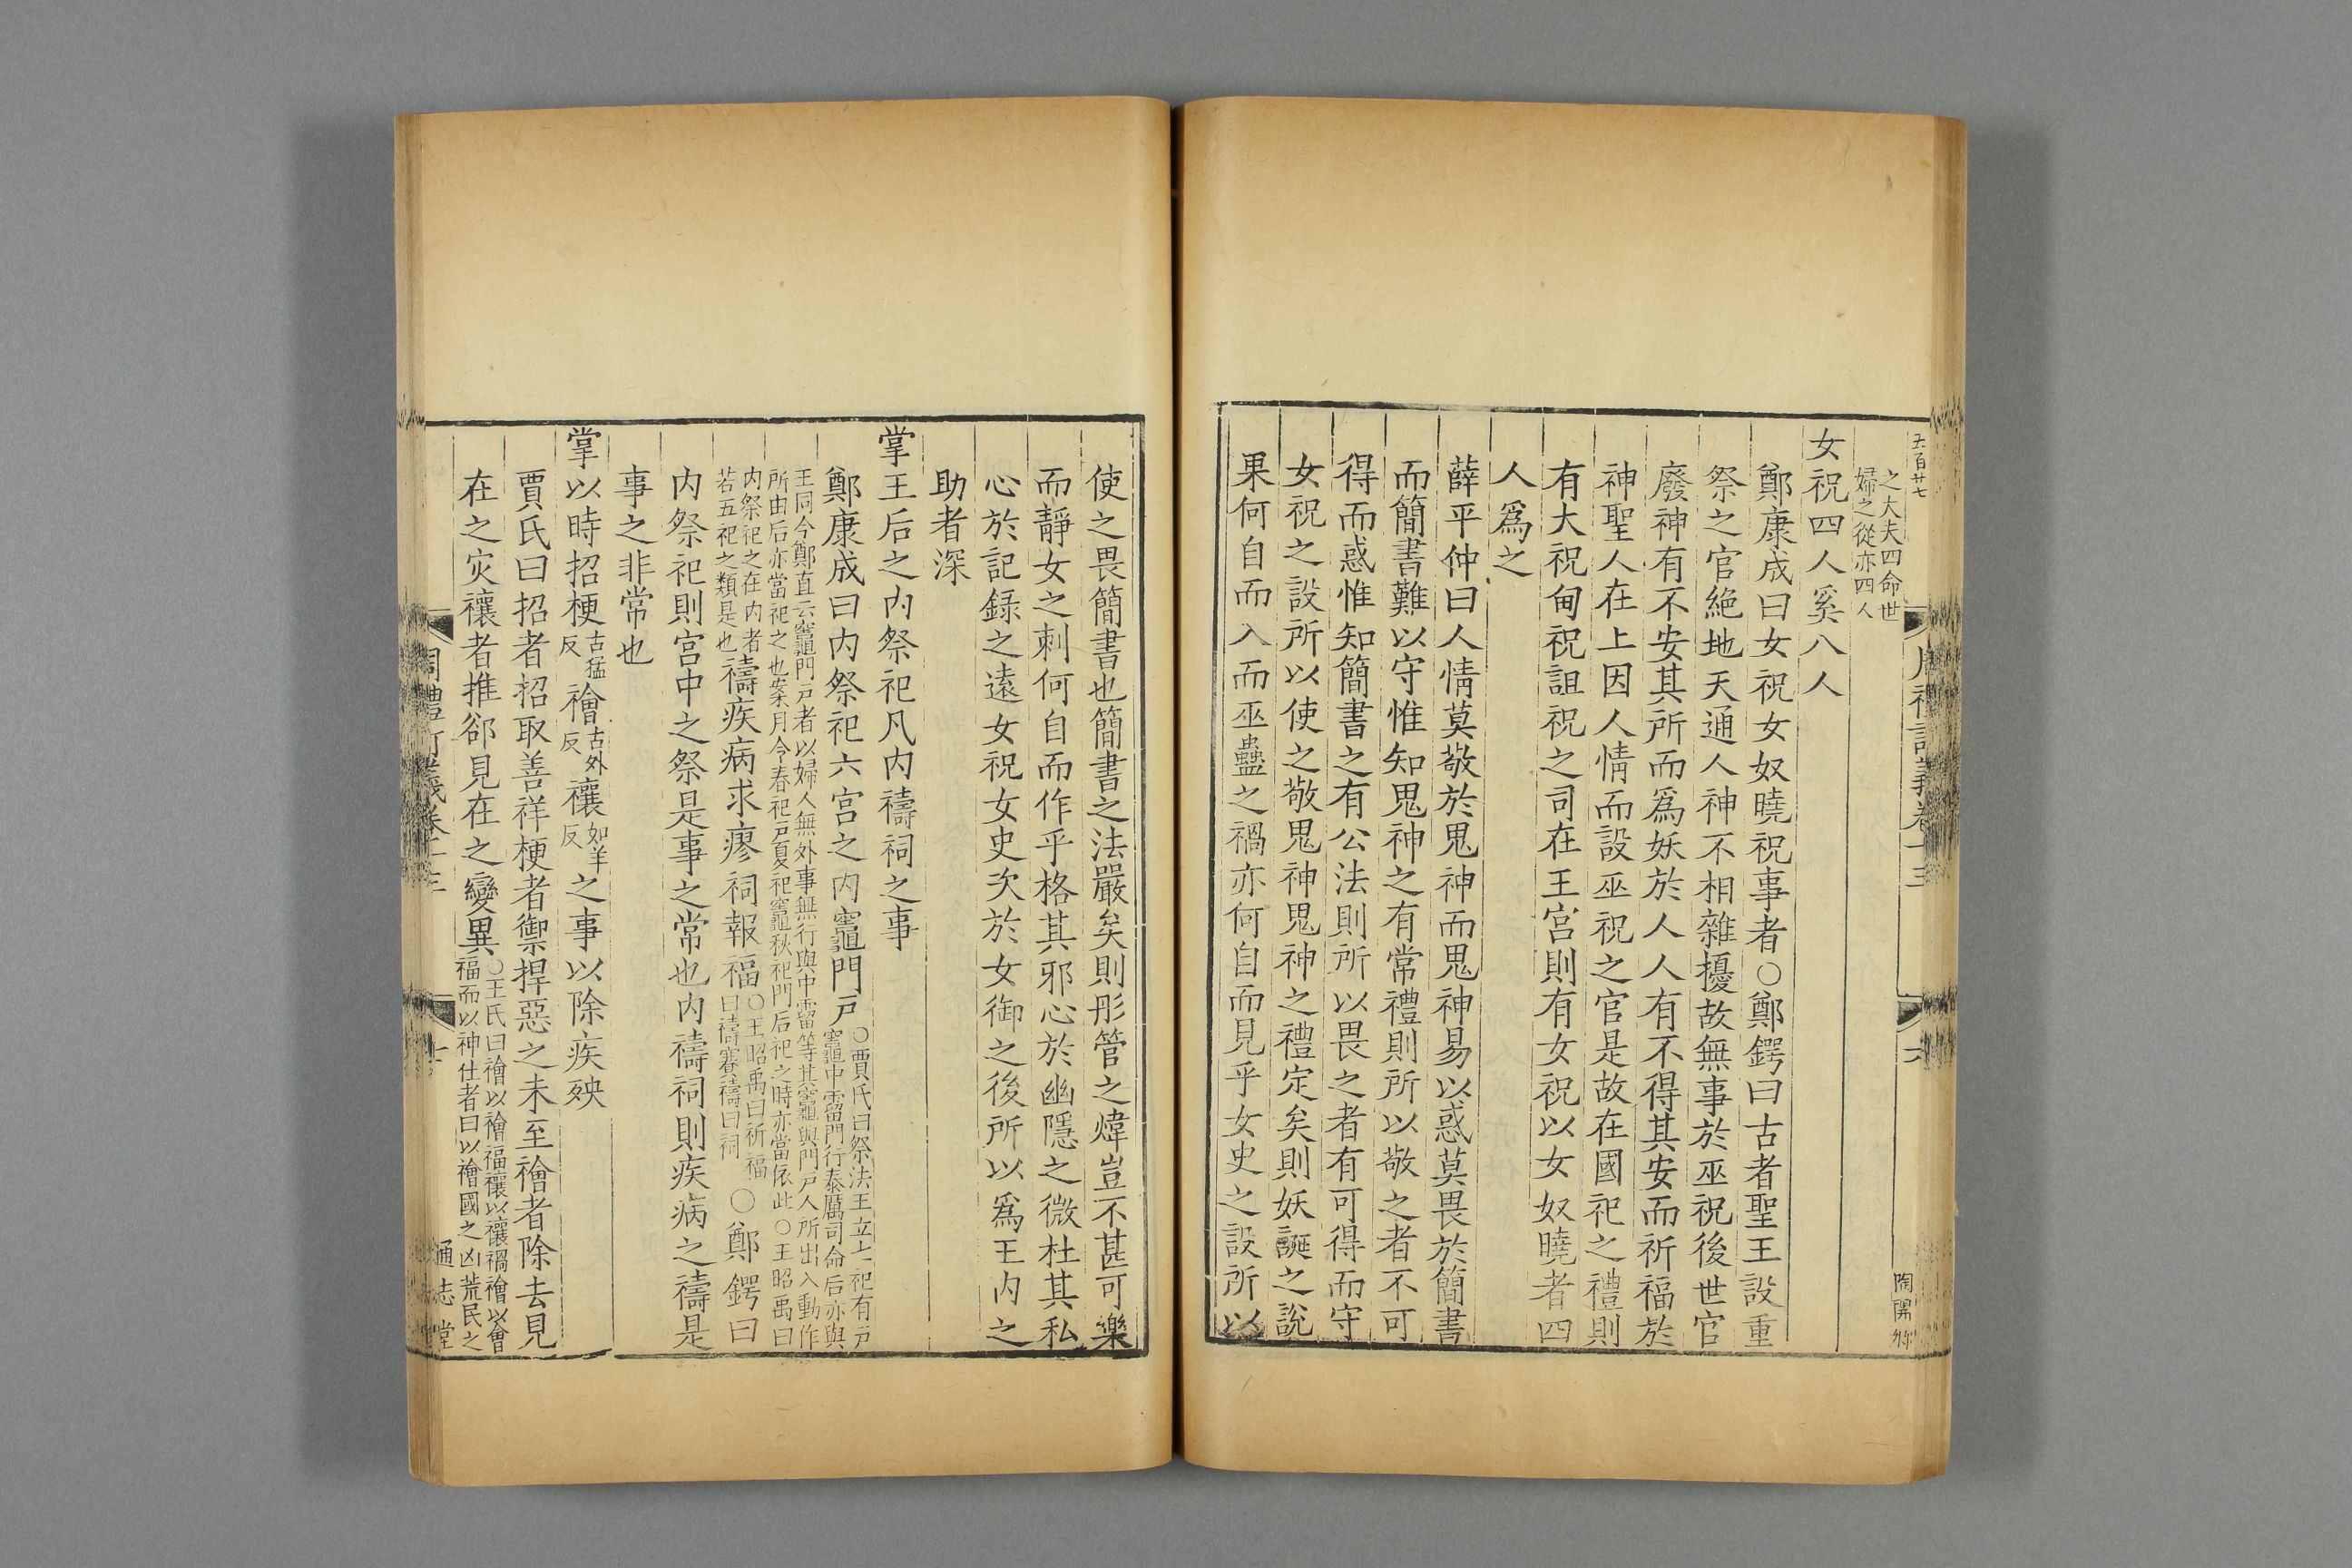 五百廿七
之大夫四命世
婦之從亦四人
女祝四人奚八人
鄭康成曰女祝女奴曉祝事者○鄭鍔曰古者聖王設重
祭之官絶地天通人神不相雜擾故無事於巫祝後世官
廢神有不安其所而爲妖於人人有不得其安而祈福於
神聖人在上因人情而設巫祝之官是故在國祀之禮則
有大祝甸祝詛祝之司在王宮則有女祝以女奴曉者四
人爲之
薛平仲曰人情莫敬於鬼神而鬼神易以惑莫畏於簡書
而簡書難以守惟知鬼神之有常禮則所以敬之者不可
得而惑惟知簡書之有公法則所以畏之者有可得而守
女祝之設所以使之敬鬼神鬼神之禮定矣則妖誕之說
果何自而入而巫蠱之禍亦何自而見乎女史之設所以
使之畏簡書也簡書之法嚴矣則彤管之煒豈不甚可樂
而靜女之刺何自而作乎格其邪心於幽隱之微杜其私
心於記録之遠女祝女史次於女御之後所以爲王内之
助者深
掌王后之内祭祀凡内禱祠之事
鄭康成曰内祭祀六宮之内竈門戶○賈氏曰祭法王立七祀有戶
竈中霤門行泰厲司命后亦與
王同今鄭直云竈門戶者以婦人無外事無行與中霤等其竈與門戶人所出入動作
所由后亦當祀之也案月令春祀戶夏祀竈秋祀門后祀之時亦當依此○王昭禹曰
内祭祀之在内者
若五祀之類是也禱疾病求瘳祠報福○王昭禹曰祈福
曰禱賽禱曰祠○鄭鍔曰
内祭祀則宮中之祭是事之常也内禱祠則疾病之禱是
事之非常也
掌以時招梗古猛反禬古外反禳如羊反之事以除疾殃
賈氏曰招者招取善祥梗者禦捍惡之未至禬者除去見
在之灾禳者推郤見在之變異○王氏曰禬以禬福禳以禳禍禬以會
福而以神仕者曰以禬國之凶荒民之
通志堂